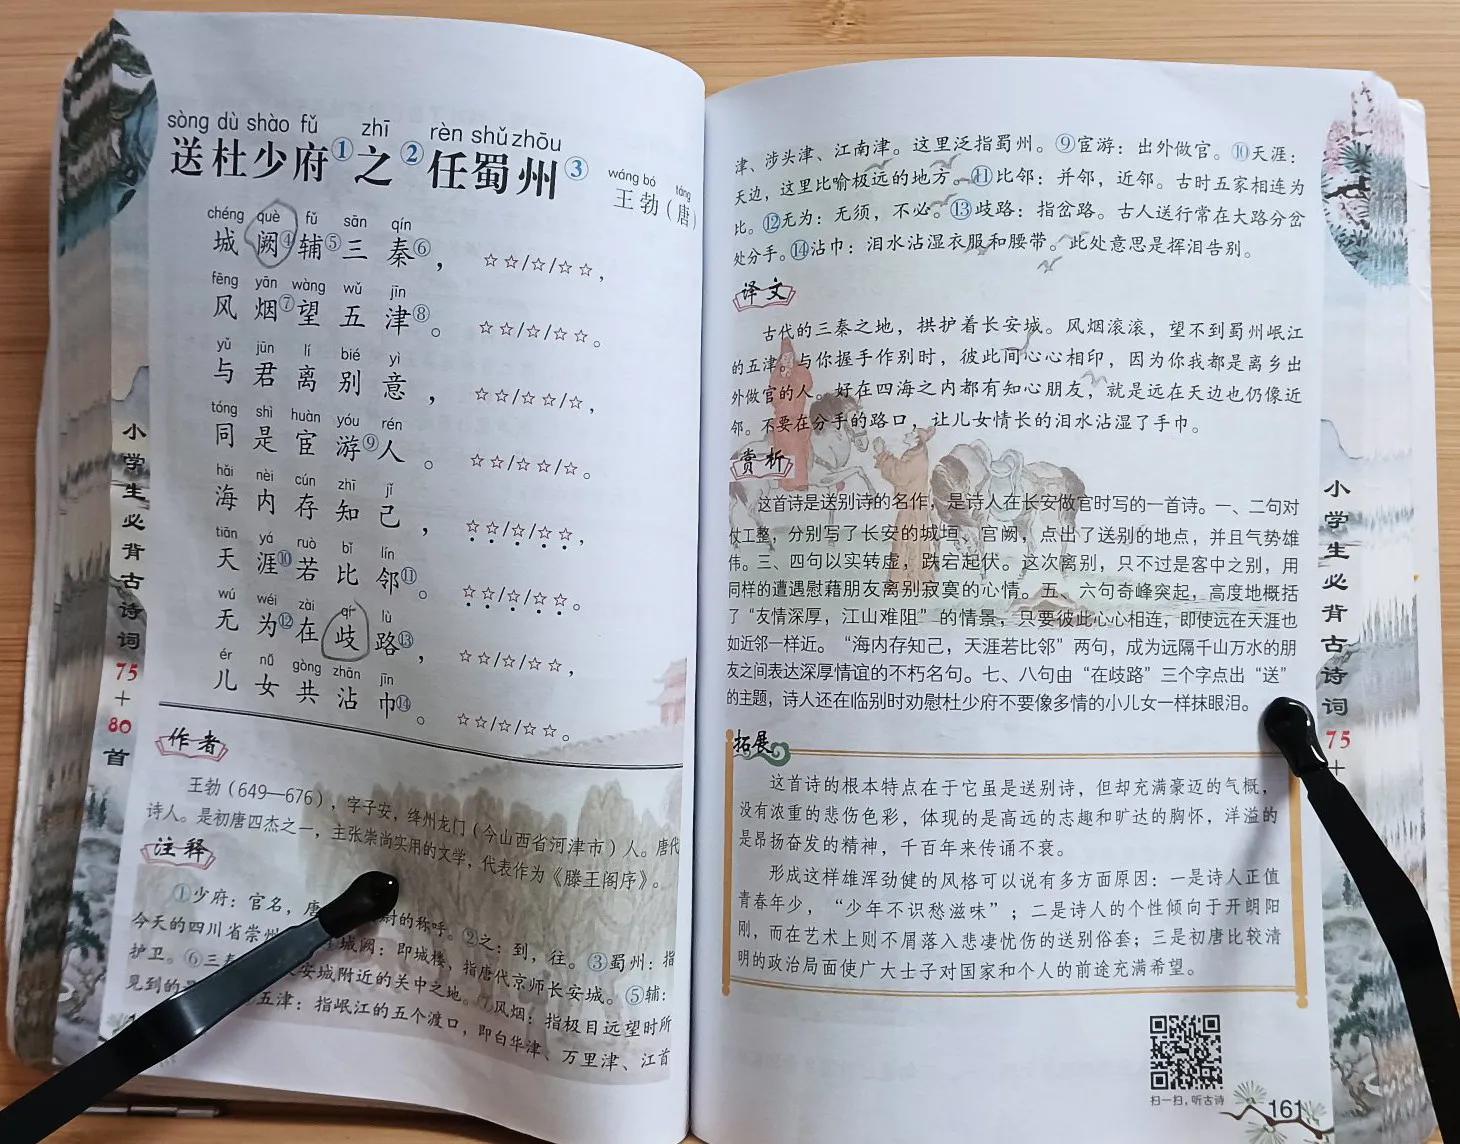 sòng dù shào fǔ zhī rèn shǔ zhōu
送杜少府①之②任蜀州③
wáng bó táng
王勃（唐）
chéng què fǔ sān qín
城阙④辅⑤三秦⑥，☆☆/☆/☆☆，
fēng yān wàng wǔ jīn
风烟⑦望五津⑧。☆☆/☆/☆☆。
yǔ jūn lí bié yì
与君离别意，☆☆/☆☆/☆，
tóng shì huàn yóu rén
同是宦游⑨人。☆☆/☆☆/☆。
hǎi nèi cún zhī jǐ
海内存知己，☆☆/☆/☆☆，
tiān yá ruò bǐ lín
天涯⑩若比邻⑪。☆☆/☆/☆☆。
wú wéi zài qí lù
无为⑫在歧路⑬，☆☆/☆/☆☆，
ér nǚ gòng zhān jīn
儿女共沾巾⑭。☆☆/☆/☆☆。
作者
王勃（649—676），字子安，绛州龙门（今山西省河津市）人。唐代
诗人。是初唐四杰之一，主张崇尚实用的文学，代表作为《滕王阁序》。
注释
①少府：官名，唐 尉的称呼。②之：到，往。③蜀州：指
今天的四川省崇州 城阙：即城楼，指唐代京师长安城。⑤辅：
护卫。⑥三 长安城附近的关中之地。⑦风烟：指极目远望时所
见到的 五津：指岷江的五个渡口，即白华津、万里津、江首
小学生必背古诗词75+80首
津、涉头津、江南津。这里泛指蜀州。⑨宦游：出外做官。⑩天涯：
天边，这里比喻极远的地方。⑪比邻：并邻，近邻。古时五家相连为
比。⑫无为：无须，不必。⑬歧路：指岔路。古人送行常在大路分岔
处分手。⑭沾巾：泪水沾湿衣服和腰带。此处意思是挥泪告别。
译文
古代的三秦之地，拱护着长安城。风烟滚滚，望不到蜀州岷江
的五津。与你握手作别时，彼此间心心相印，因为你我都是离乡出
外做官的人。好在四海之内都有知心朋友，就是远在天边也仍像近
邻。不要在分手的路口，让儿女情长的泪水沾湿了手巾。
赏析
这首诗是送别诗的名作，是诗人在长安做官时写的一首诗。一、二句对
仗工整，分别写了长安的城垣、宫阙，点出了送别的地点，并且气势雄
伟。三、四句以实转虚，跌宕起伏。这次离别，只不过是客中之别，用
同样的遭遇慰藉朋友离别寂寞的心情。五、六句奇峰突起，高度地概括
了“友情深厚，江山难阻”的情景，只要彼此心心相连，即使远在天涯也
如近邻一样近。“海内存知己，天涯若比邻”两句，成为远隔千山万水的朋
友之间表达深厚情谊的不朽名句。七、八句由“在歧路”三个字点出“送”
的主题，诗人还在临别时劝慰杜少府不要像多情的小儿女一样抹眼泪。
拓展
这首诗的根本特点在于它虽是送别诗，但却充满豪迈的气概，
没有浓重的悲伤色彩，体现的是高远的志趣和旷达的胸怀，洋溢的
是昂扬奋发的精神，千百年来传诵不衰。
形成这样雄浑劲健的风格可以说有多方面原因：一是诗人正值
青春年少，“少年不识愁滋味”；二是诗人的个性倾向于开朗阳
刚，而在艺术上则不屑落入悲凄忧伤的送别俗套；三是初唐比较清
明的政治局面使广大士子对国家和个人的前途充满希望。
扫一扫，听古诗
161
小学生必背古诗词75+